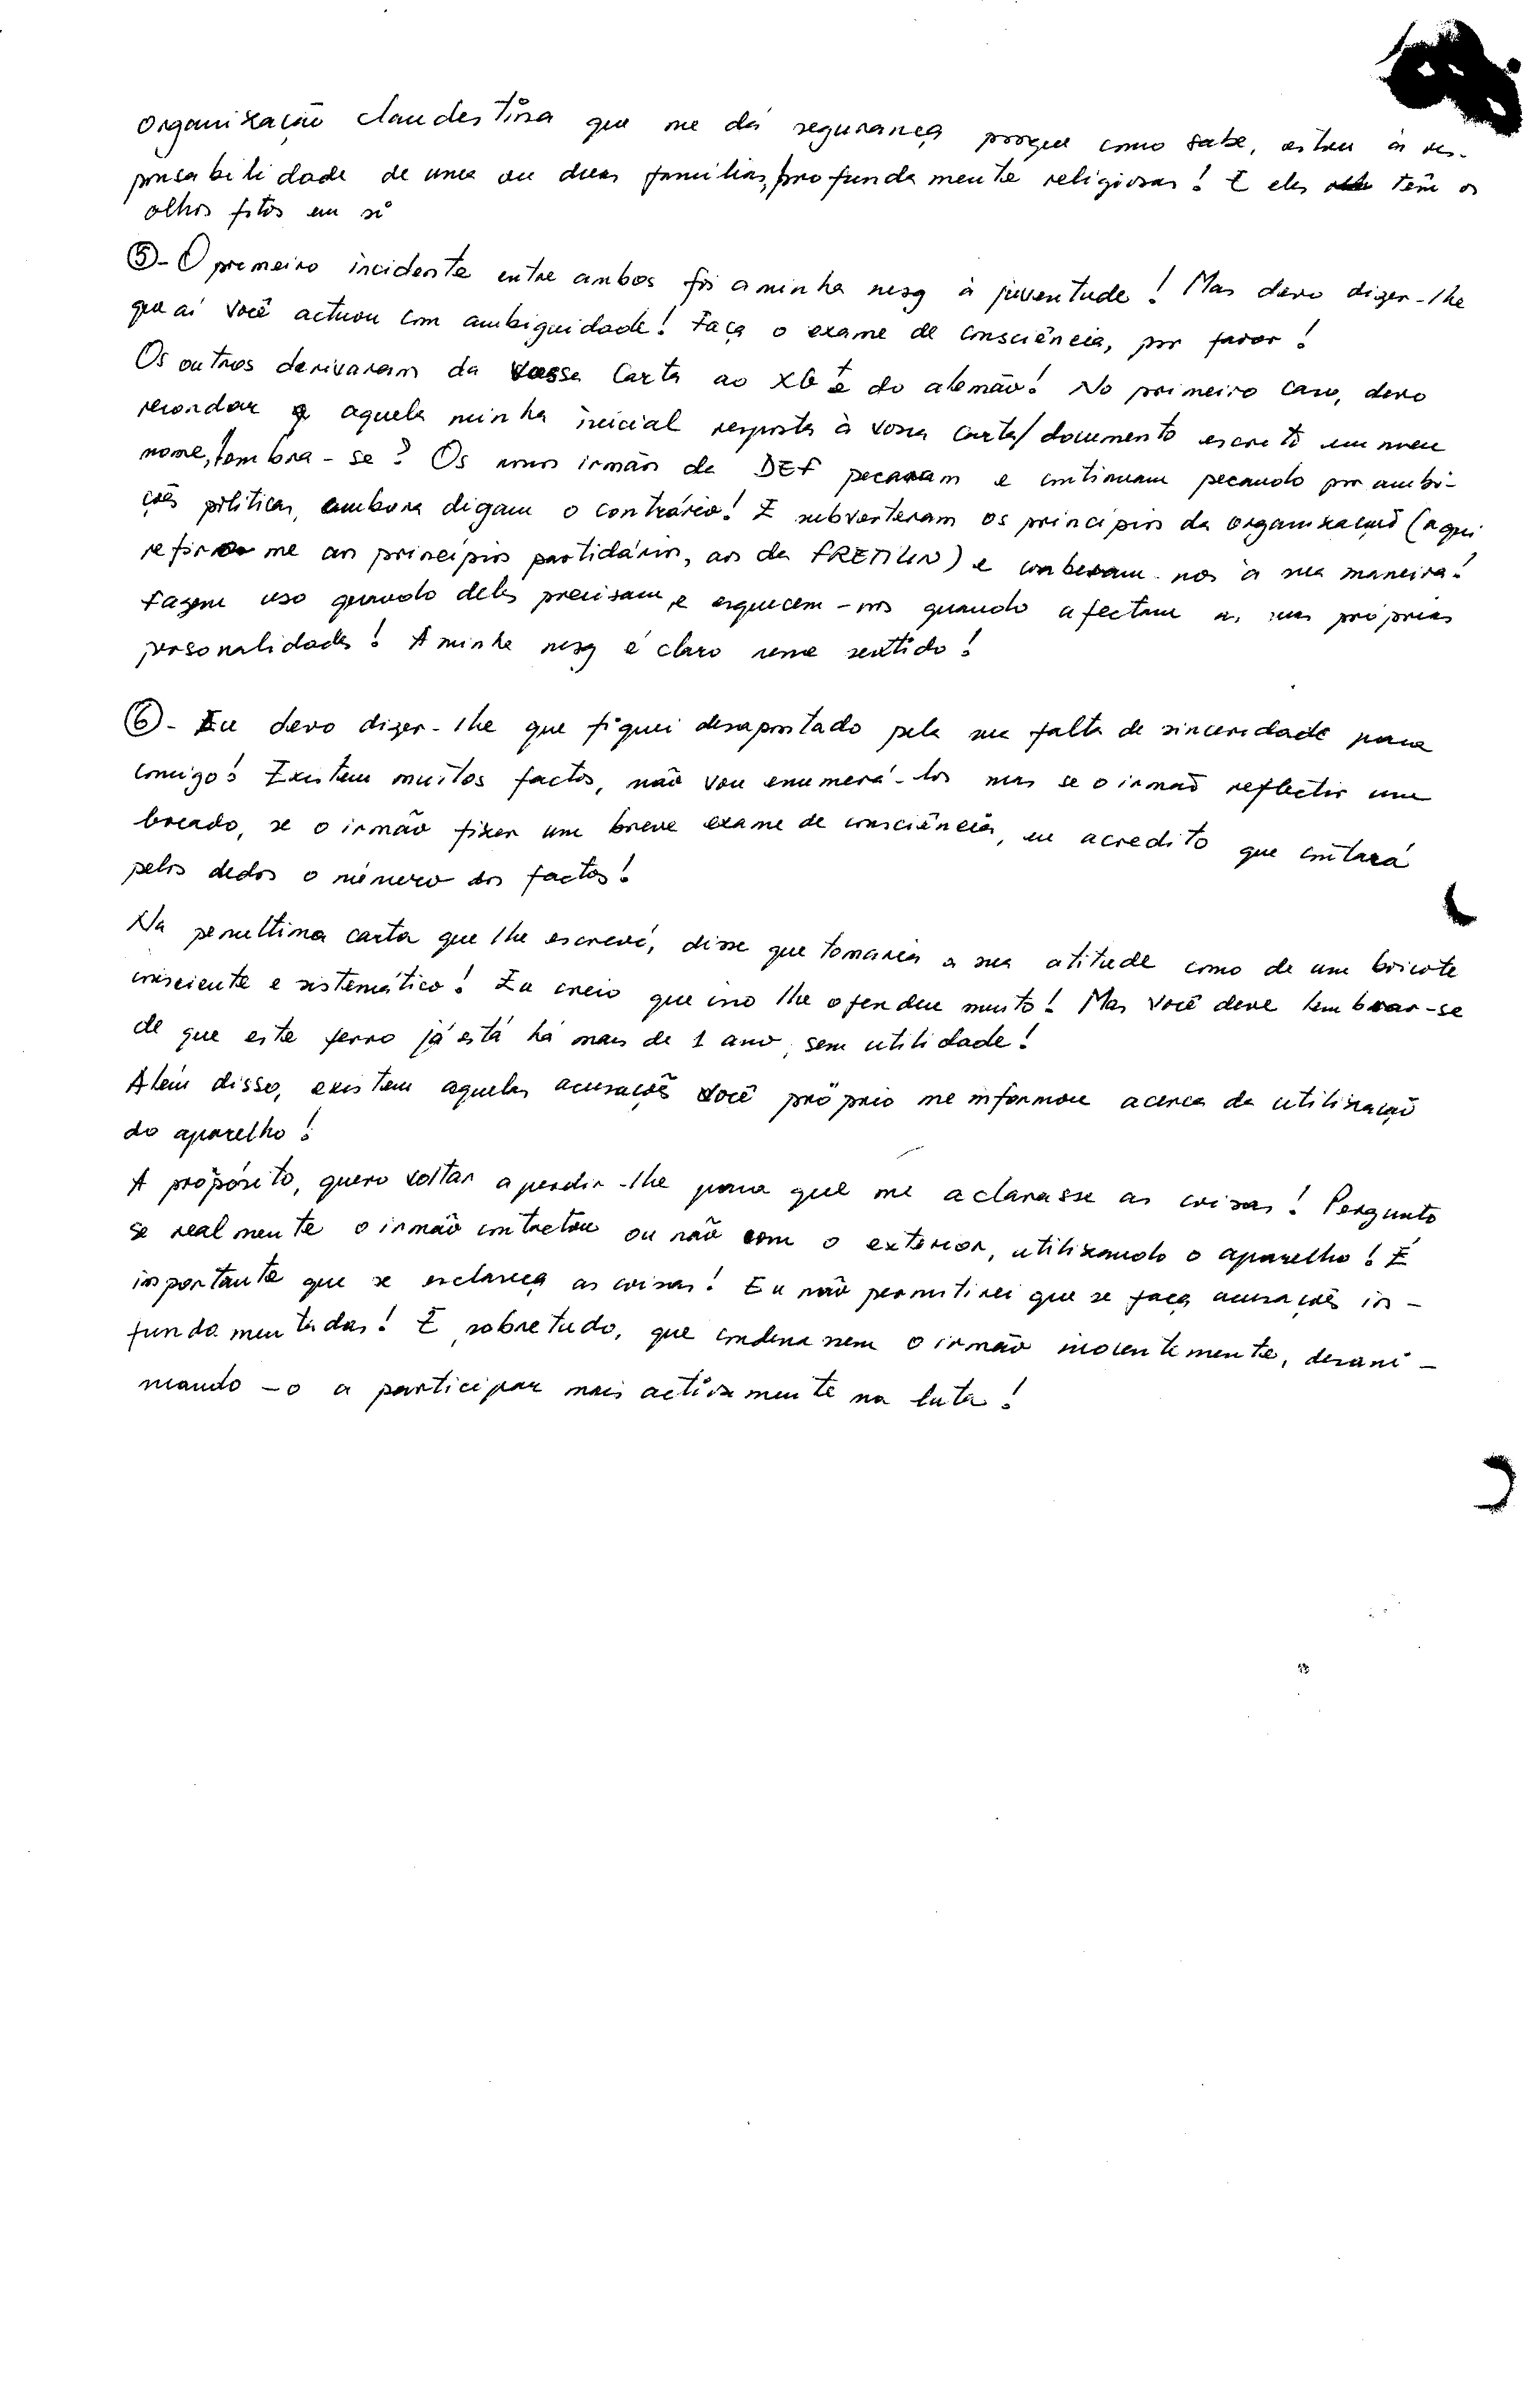 organização clandestina que me dá segurança porque como sabe, estou à res-
ponsabilidade de uma ou duas famílias, profundamente religiosas! E eles têm os
olhos fitos em si
⑤- O primeiro incidente entre ambos foi a minha mesg à juventude! Mas devo dizer-lhe
que aí você actuou com ambiguidade! Faça o exame de consciência, por favor!
Os outros derivaram da vossa Carta ao XG e do alemão! No primeiro caso, devo
recordar aquela minha inicial resposta à vossa carta/documento escrito em meu
nome, lembra-se? Os irmãos da DEF pecaram e continuam pecando por ambi-
ções políticas, embora digam o contrário! E subverteram os princípios da organização (aqui
refiro me aos princípios partidários, aos da FRETILIN) e nos à sua maneira!
Fazem uso quando deles precisam, e esquecem-nos quando afectam as suas próprias
personalidades! A minha mesg é claro nesse sentido!
⑥- Eu devo dizer-lhe que fiquei desapontado pela sua falta de sinceridade para
comigo! Existem muitos factos, não vou enumerá-los mas se o irmão reflectir um
bocado, se o irmão fizer um breve exame de consciência, eu acredito que contará
pelos dedos o número dos factos!
Na penultima carta que lhe escrevi, disse que tomaria a sua atitude como de um boicote
consciente e sistemático! Eu creio que isso lhe ofendeu muito! Mas você deve lembrar-se
de que este ferro já está há mais de 1 ano, sem utilidade!
Além disso, existem aquelas acusações você próprio me informou acerca da utilização
do aparelho!
A propósito, quero voltar a perdir-lhe para que me aclarasse as coisas! Pergunto
se realmente o irmão contactou ou não com o exterior, utilizando o aparelho! É
importante que se esclareça as coisas! Eu não permitirei que se faça acusações in-
fundamentadas! E sobretudo, que condenassem o irmão inocentemente, desani-
mando-o a participar mais activamente na luta!